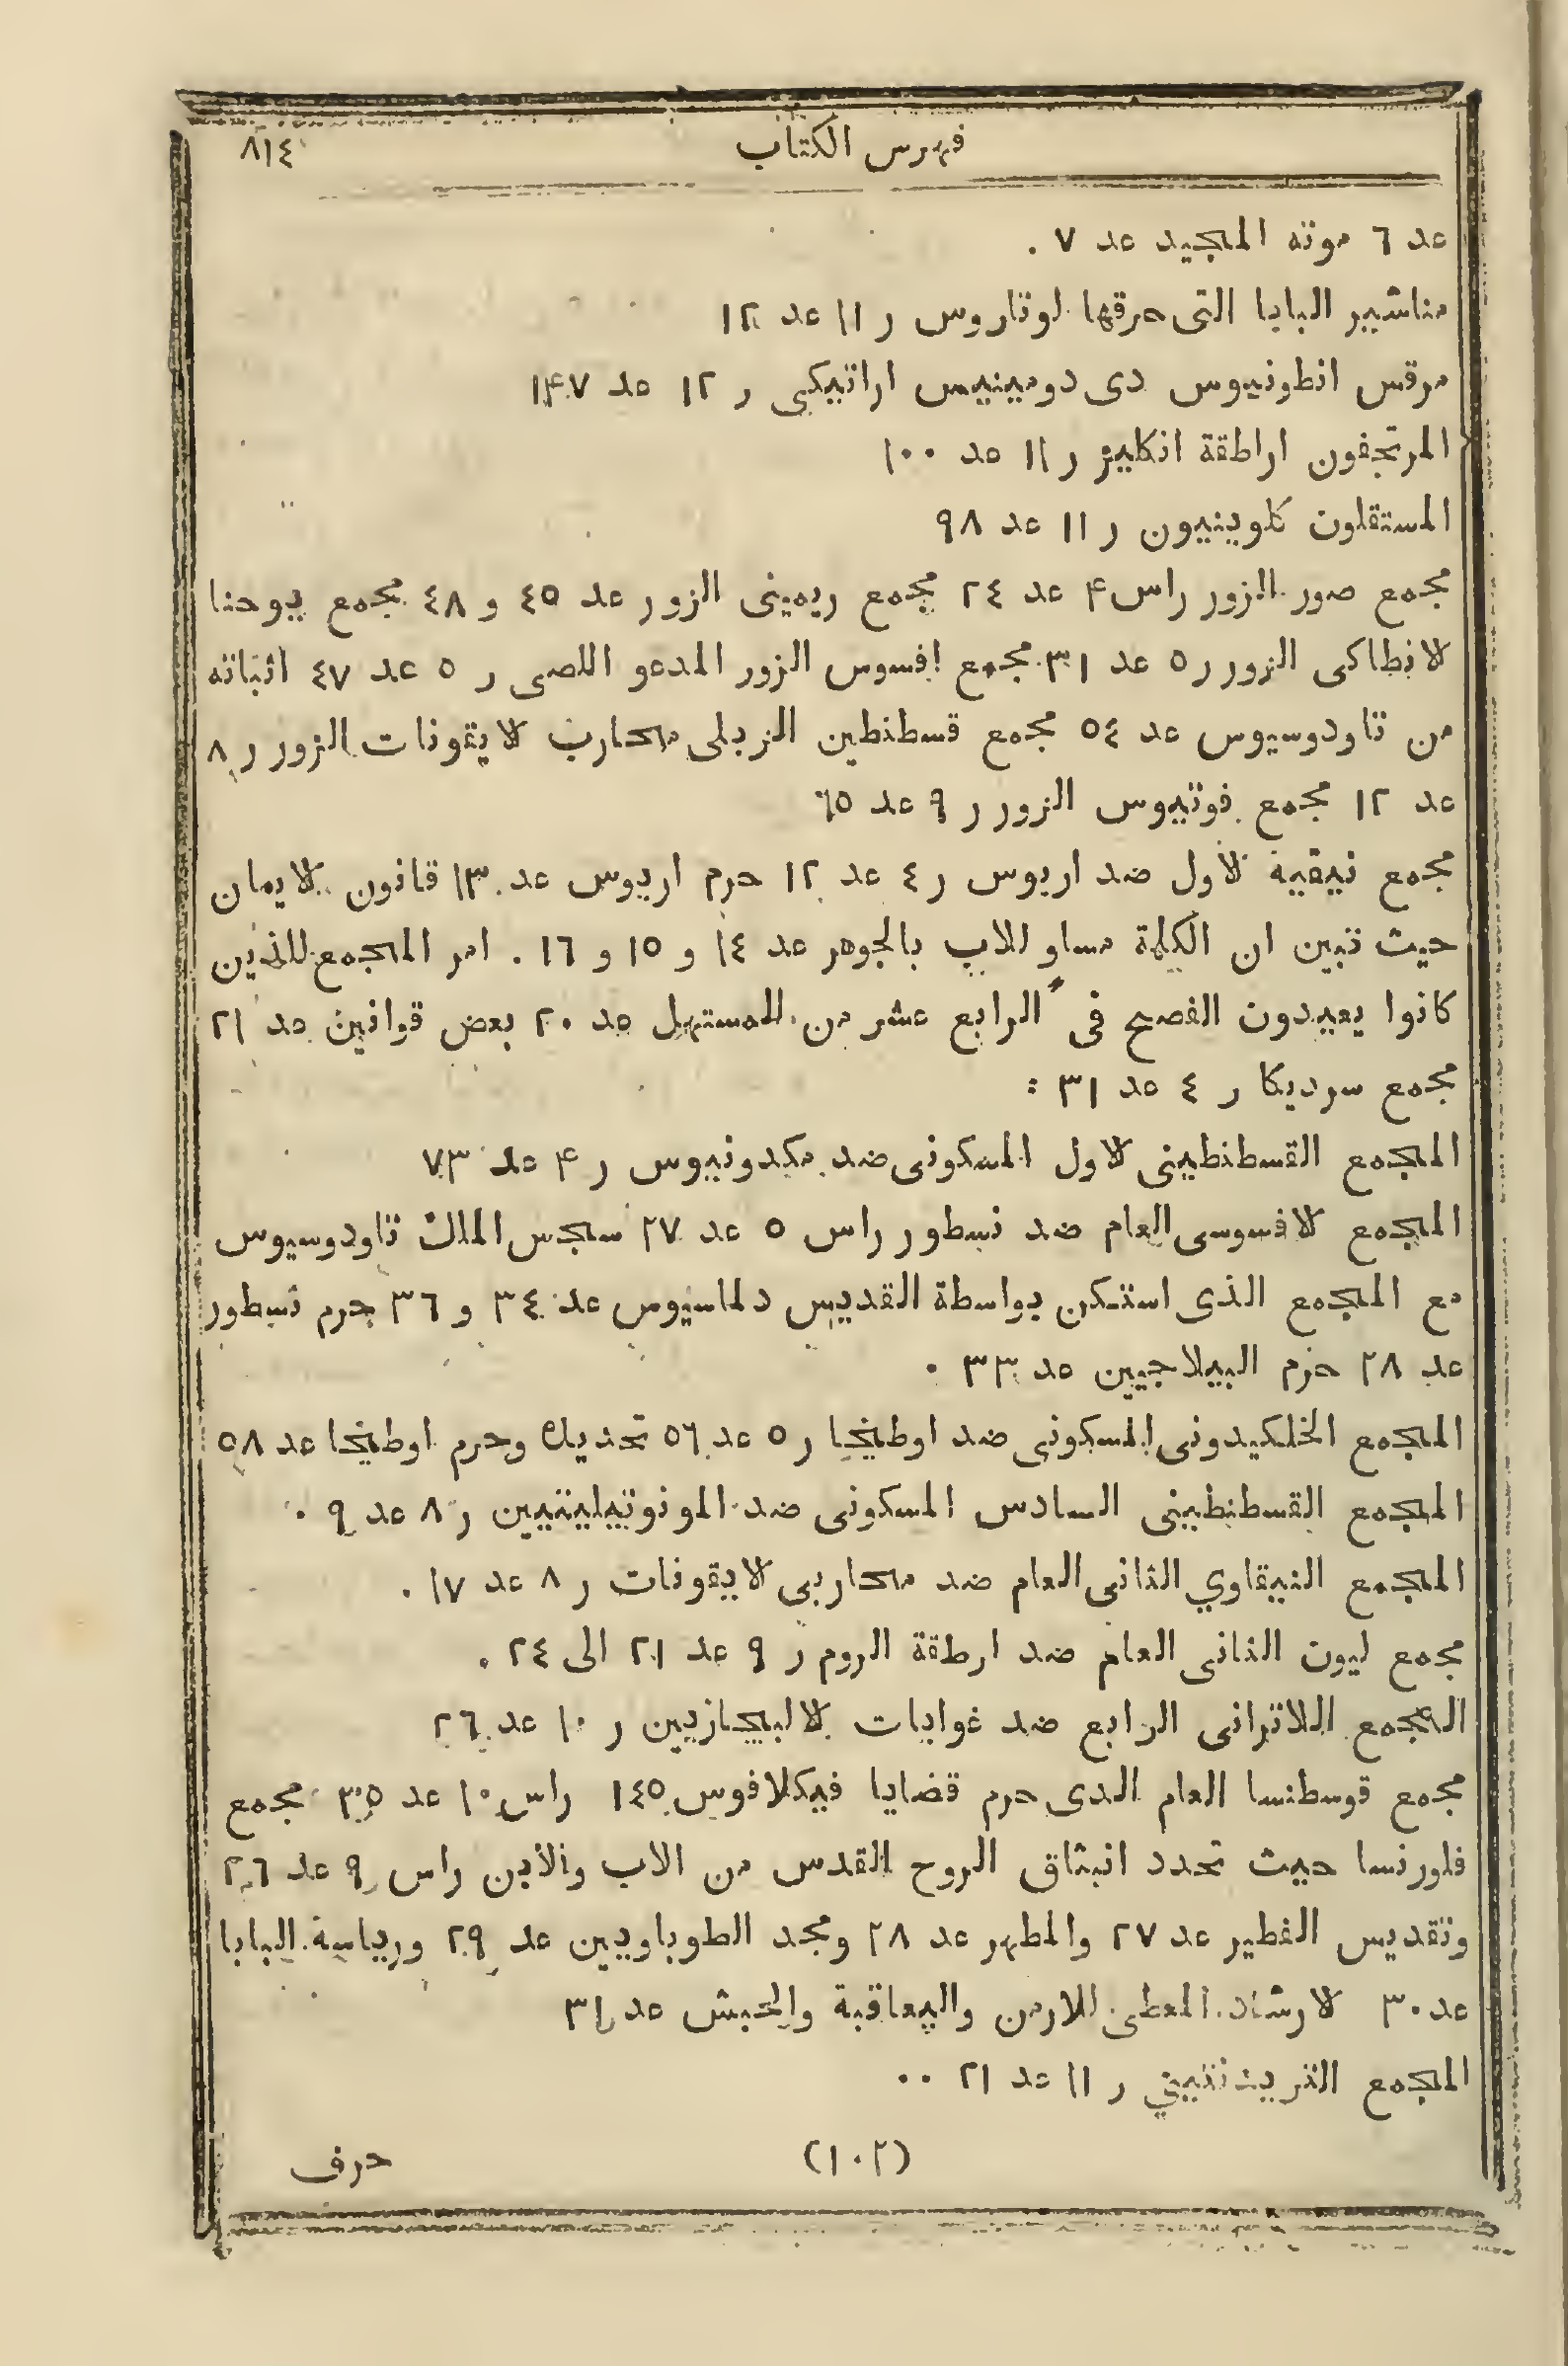 فهرس الكتاب ٨١٤
عد ٦ موته المجيد عد ٧ .
مناشير البابا التى حرقها لوتاروس ر ١١ عد ١٢
مرقس انطونيوس دى دومينيس اراتيكى ر ١٢ عد ١۴٧
المرتجفون اراطقة انكليز ر ١١ عد ١٠٠
المستقلون كلوينيون ر ١١ عد ٩٨
مجمع صور الزور راس ۴ عد ٢٤ مجمع ريمينى الزور عد ٤٥ و ٤٨ مجمع يوحنا
لانطاكى الزور ر ٥ عد ٣١ مجمع افسوس الزور المدعو اللصى ر ٥ عد ٤٧ اثباته
من تاودوسيوس عد ٥٤ مجمع قسطنطين الزبلى محارب لايقونات الزور ر ٨
عد ١٢ مجمع فوتيوس الزور ر ٩ عد ٦٥
مجمع نيقية لاول ضد اريوس ر ٤ عد ١٢ حرم اريوس عد ١٣ قانون لايمان
حيث تبين ان الكلمة مساو للاب بالجوهر عد ١٤ و ١٥ و ١٦ . امر المجمع للذين
كانوا يعيدون الفصح فى الرابع عشر من المستهل عد ٢٠ بعض قوانين عد ٢١
مجمع سرديكا ر ٤ عد ٣١ :
المجمع القسطنطينى لاول المسكونى ضد مكدونيوس ر ۴ عد ٧٣
المجمع لافسوسى العام ضد نسطور راس ٥ عد ٢٧ سجس الملك تاودوسيوس
مع المجمع الذى استكن بواسطة القديس دلماسيوس عد ٣٤ و ٣٦ حرم نسطور
عد ٢٨ حزم البيلاجيين عد ٣٣ .
المجمع الخلكيدونى المسكونى ضد اوطيخا ر ٥ عد ٥٦ تحديك وحرم اوطيخا عد ٥٨
المجمع القسطنطينى السادس المسكونى ضد المونوتيليتيين ر ٨ عد ٩ .
المجمع النيقاوي الثانى العام ضد محاربى لايقونات ر ٨ عد ١٧ .
مجمع ليون الثانى العام ضد ارطقة الروم ر ٩ عد ٢١ الى ٢٤ .
المجمع اللاترانى الرابع ضد غوايات لالبيجازيين ر ١٠ عد ٢٦
مجمع قوسطنسا العام الدى حرم قضايا فيكلافوس ١٤٥ راس ١٠ عد ٣٥ مجمع
فلورنسا حيث تحدد انبثاق الروح القدس من الاب والابن راس ٩ عد ٢٦
وتقديس الفطير عد ٢٧ والمطهر عد ٢٨ ومجد الطوباويين عد ٢٩ ورياسة البابا
عد ٣٠ لارشاد المعطى للارمن واليعاقبة والحبش عد ٣١
المجمع التريدنتيني ر ١١ عد ٢١ ..
(١٠٢) حرف